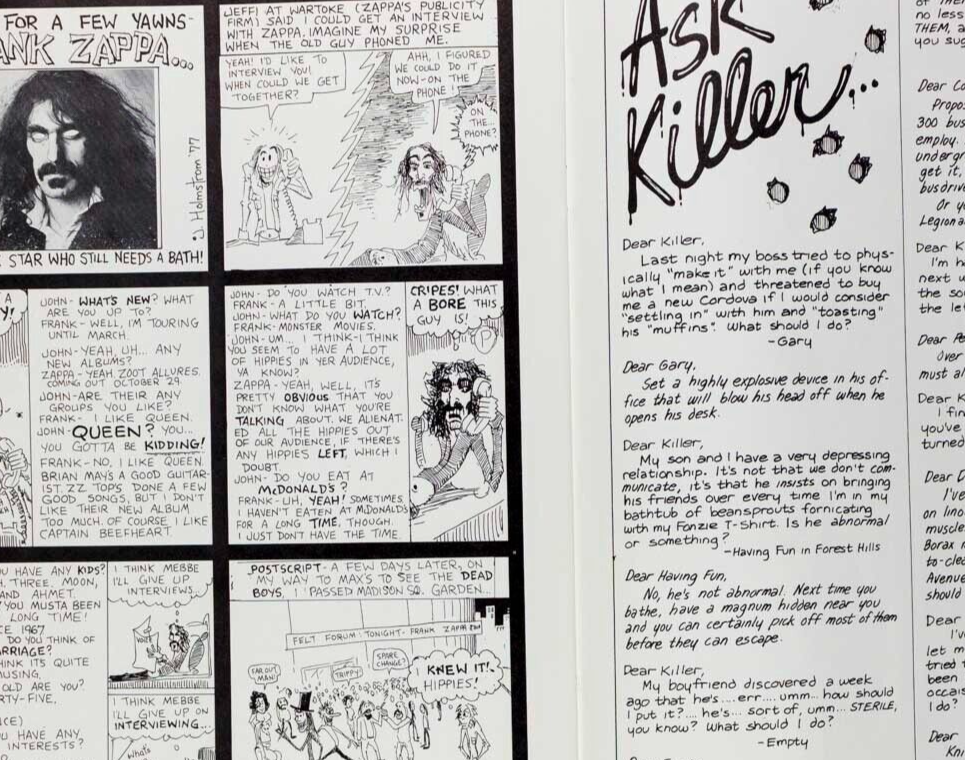 FOR A FEW YAWNS-
ANK ZAPPA...
J. Holmstrom '77
STAR WHO STILL NEEDS A BATH!
JEFF) AT WARTOKE (ZAPPA'S PUBLICITY
FIRM) SAID I COULD GET AN INTERVIEW
WITH ZAPPA. IMAGINE MY SURPRISE
WHEN THE OLD GUY PHONED ME.
YEAH! I'D LIKE TO
INTERVIEW YOU!
WHEN COULD WE GET
TOGETHER?
AHH, I FIGURED
WE COULD DO IT
NOW-ON THE
PHONE!
ON
THE...
PHONE?
A
Y!
JOHN- WHAT'S NEW? WHAT
ARE YOU UP TO?
FRANK- WELL, I'M TOURING
UNTIL MARCH.
JOHN-YEAH, UH... ANY
NEW ALBUMS?
ZAPPA-YEAH. ZOOT ALLURES.
COMING OUT OCTOBER 29.
JOHN-ARE THEIR ANY
GROUPS YOU LIKE?
FRANK- I LIKE QUEEN.
JOHN-QUEEN? YOU...
YOU GOTTA BE KIDDING!
FRANK-NO, I LIKE QUEEN.
BRIAN MAY'S A GOOD GUITAR-
IST. ZZ TOPS DONE A FEW
GOOD SONGS, BUT I DON'T
LIKE THEIR NEW ALBUM
TOO MUCH. OF COURSE I LIKE
CAPTAIN BEEFHEART.
JOHN- DO YOU WATCH T.V.?
FRANK- A LITTLE BIT.
JOHN-WHAT DO YOU WATCH?
FRANK-MONSTER MOVIES.
JOHN-UM... I THINK-I THINK
YOU SEEM TO HAVE A LOT
OF HIPPIES IN YER AUDIENCE,
YA KNOW?
ZAPPA-YEAH, WELL, IT'S
PRETTY OBVIOUS THAT YOU
DON'T KNOW WHAT YOU'RE
TALKING ABOUT. WE ALIENAT-
ED ALL THE HIPPIES OUT
OF OUR AUDIENCE, IF THERE'S
ANY HIPPIES LEFT, WHICH I
DOUBT.
JOHN- DO YOU EAT AT
McDONALD'S?
FRANK-UH, YEAH! SOMETIMES.
I HAVEN'T EATEN AT McDONALD'S
FOR A LONG TIME, THOUGH.
I JUST DON'T HAVE THE TIME.
CRIPES! WHAT
A BORE THIS
GUY IS!
U HAVE ANY KIDS?
THREE. MOON,
AND AHMET.
YOU MUSTA BEEN
LONG TIME!
CE 1967
DO YOU THINK OF
ARRIAGE?
HINK ITS QUITE
MUSING.
OLD ARE YOU?
RTY-FIVE.
CE)
U HAVE ANY
INTERESTS?
I THINK MEBBE
I'LL GIVE UP
INTERVIEWS...
I THINK MEBBE
I'LL GIVE UP ON
INTERVIEWING...
What's
POSTSCRIPT- A FEW DAYS LATER, ON
MY WAY TO MAX'S TO SEE THE DEAD
BOYS, I PASSED MADISON SQ. GARDEN...
FELT FORUM: TONIGHT- FRANK ZAPPA
FAR OUT
MAN!
TRIPPY
SPARE
CHANGE?
I KNEW IT!
HIPPIES!
Ask
Killer...
Dear Killer,
Last night my boss tried to phys-
ically "make it" with me (if you know
what I mean) and threatened to buy
me a new Cordova if I would consider
"settling in" with him and "toasting"
his "muffins". What should I do?
-Gary
Dear Gary,
Set a highly explosive device in his of-
fice that will blow his head off when he
opens his desk.
Dear Killer,
My son and I have a very depressing
relationship. It's not that we don't com-
municate, it's that he insists on bringing
his friends over every time I'm in my
bathtub of beansprouts fornicating
with my Fonzie T-Shirt. Is he abnormal
or something?
-Having Fun in Forest Hills
Dear Having Fun,
No, he's not abnormal. Next time you
bathe, have a magnum hidden near you
and you can certainly pick off most of them
before they can escape.
Dear Killer,
My boyfriend discovered a week
ago that he's....err....umm... how should
I put it?.... he's... sort of, umm... STERILE,
you know? What should I do?
-Empty
no less
THEM, a
you sug
Dear Co
Propos
300 bus
employ.
undergr
get it,
busdrive
Or yo
Legiona
Dear K
I'm h
next w
the so
the le
Dear Pe
Over
must al
Dear K
I fin
you've
turned
Dear D
I've
on lino
muscle
Borax
to-cle
Avenue
should
Dear
I'v
let m
tried
been
occais
I do?
Dear
Kni